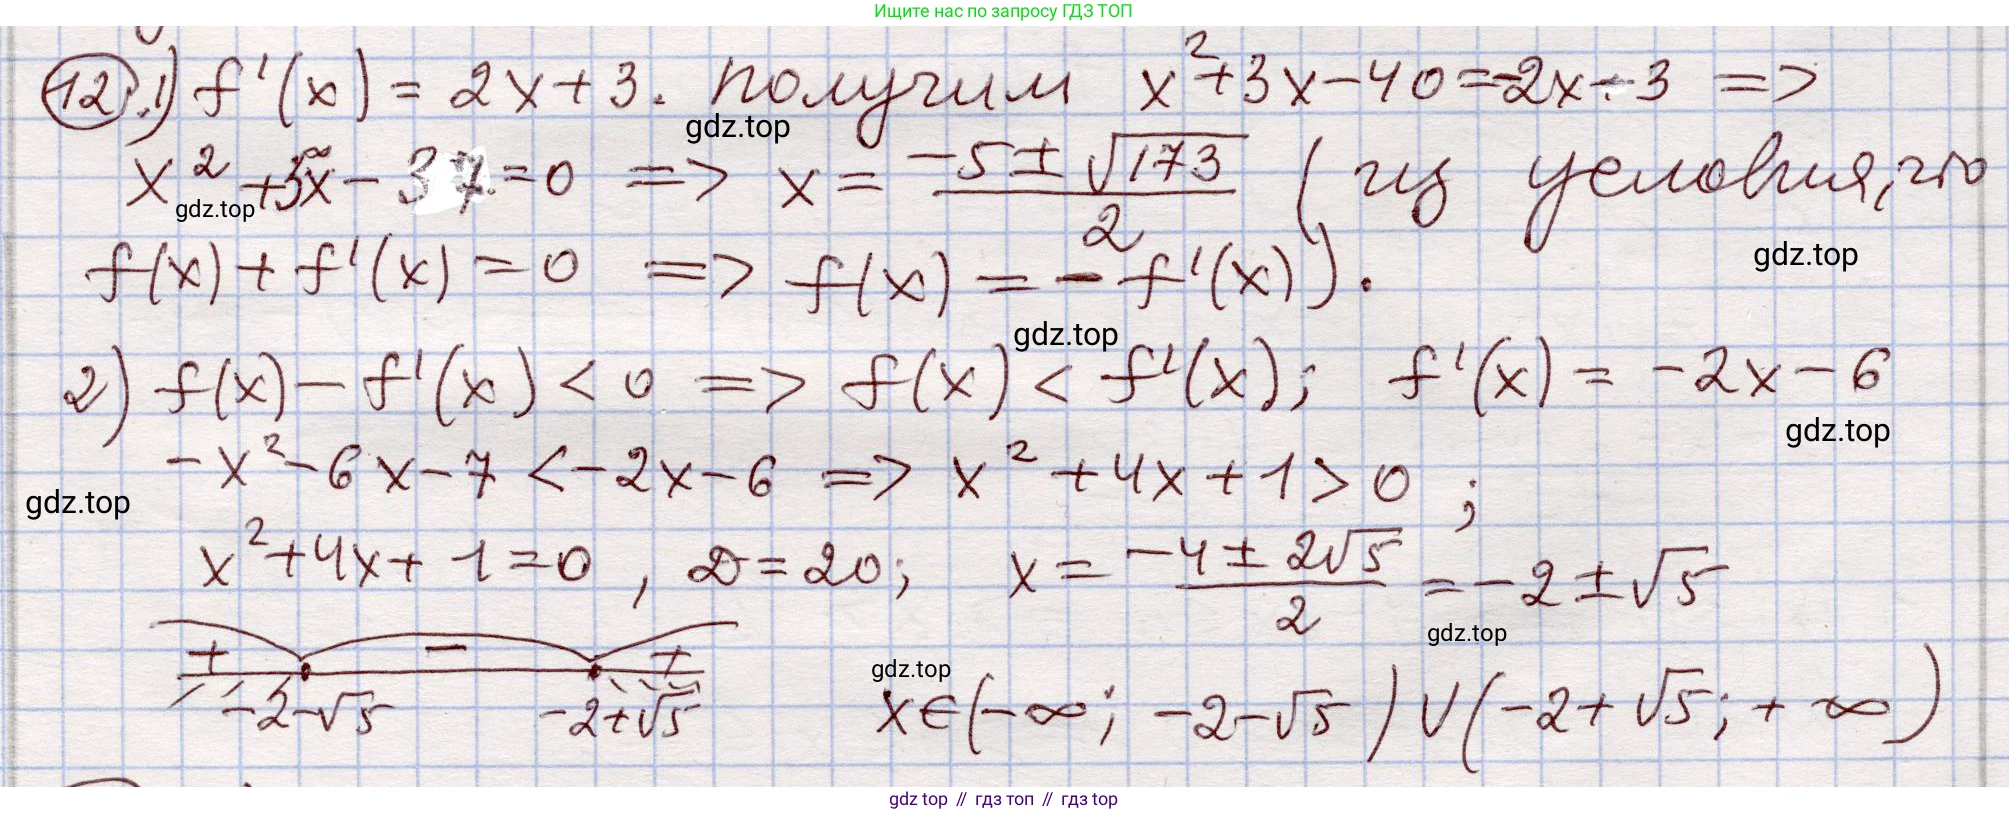 Ищите нас по запросу ГДЗ ТОП
12. 1) f'(x) = 2x + 3. получим x² + 3x - 40 = -2x - 3 =>
gdz.top
x² + 5x - 37 = 0 => x = (-5 ± √173)/2 (из условия, что
gdz.top
gdz.top
f(x) + f'(x) = 0 => f(x) = - f'(x)).
gdz.top
2) f(x) - f'(x) < 0 => f(x) < f'(x); f'(x) = -2x - 6
gdz.top
-x² - 6x - 7 < -2x - 6 => x² + 4x + 1 > 0 ;
gdz.top
x² + 4x + 1 = 0 , D = 20; x = (-4 ± 2√5)/2 = -2 ± √5
gdz.top
+ - +
gdz.top
-2-√5 -2+√5 x ∈ (-∞; -2-√5) ∪ (-2+√5; +∞)
gdz top // гдз топ // гдз top